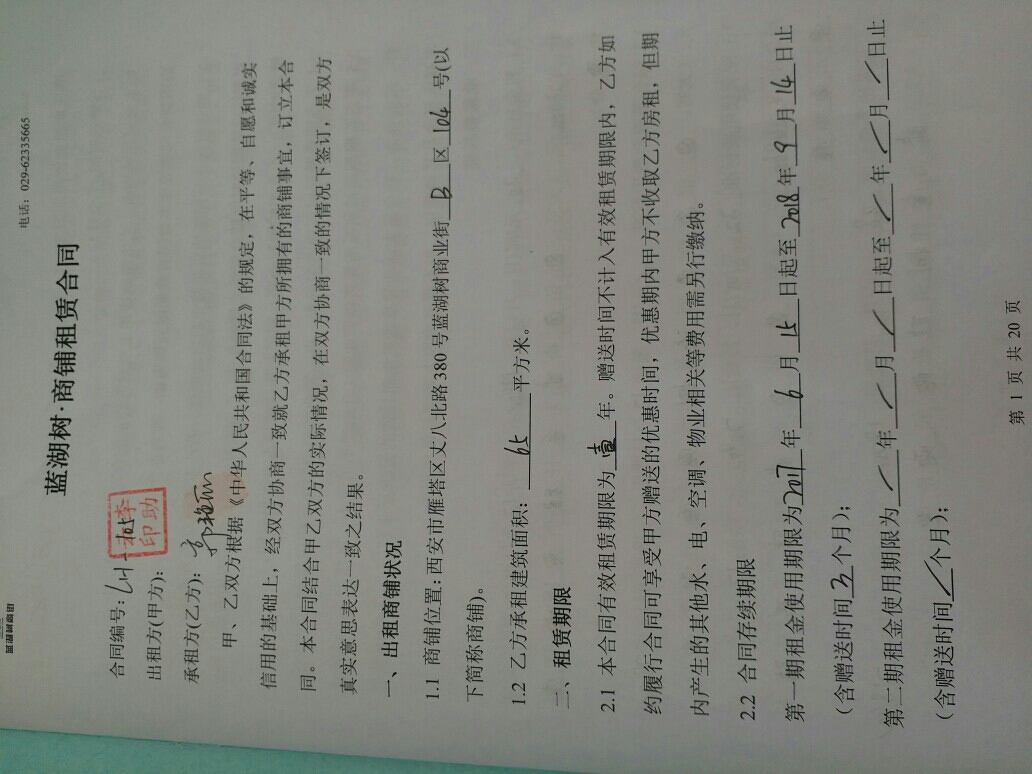 蓝湖树商街
电话：029-62335665
蓝湖树·商铺租赁合同
合同编号：LH-105
出租方(甲方)：
承租方(乙方)：郭艳丽
甲、乙双方根据《中华人民共和国合同法》的规定，在平等、自愿和诚实
信用的基础上，经双方协商一致就乙方承租甲方所拥有的商铺事宜，订立本合
同。本合同结合甲乙双方的实际情况，在双方协商一致的情况下签订，是双方
真实意思表达一致之结果。
一、出租商铺状况
1.1 商铺位置：西安市雁塔区丈八北路380号蓝湖树商业街 B 区 104 号(以
下简称商铺)。
1.2 乙方承租建筑面积： 65 平方米。
二、租赁期限
2.1 本合同有效租赁期限为 壹 年。赠送时间不计入有效租赁期限内，乙方如
约履行合同可享受甲方赠送的优惠时间，优惠期内甲方不收取乙方房租，但期
内产生的其他水、电、空调、物业相关等费用需另行缴纳。
2.2 合同存续期限
第一期租金使用期限为 2017 年 6 月 15 日起至 2018 年 9 月 14 日止
（含赠送时间 3 个月）；
第二期租金使用期限为 / 年 / 月 / 日起至 / 年 / 月 / 日止
（含赠送时间 / 个月）；
第 1 页 共 20 页